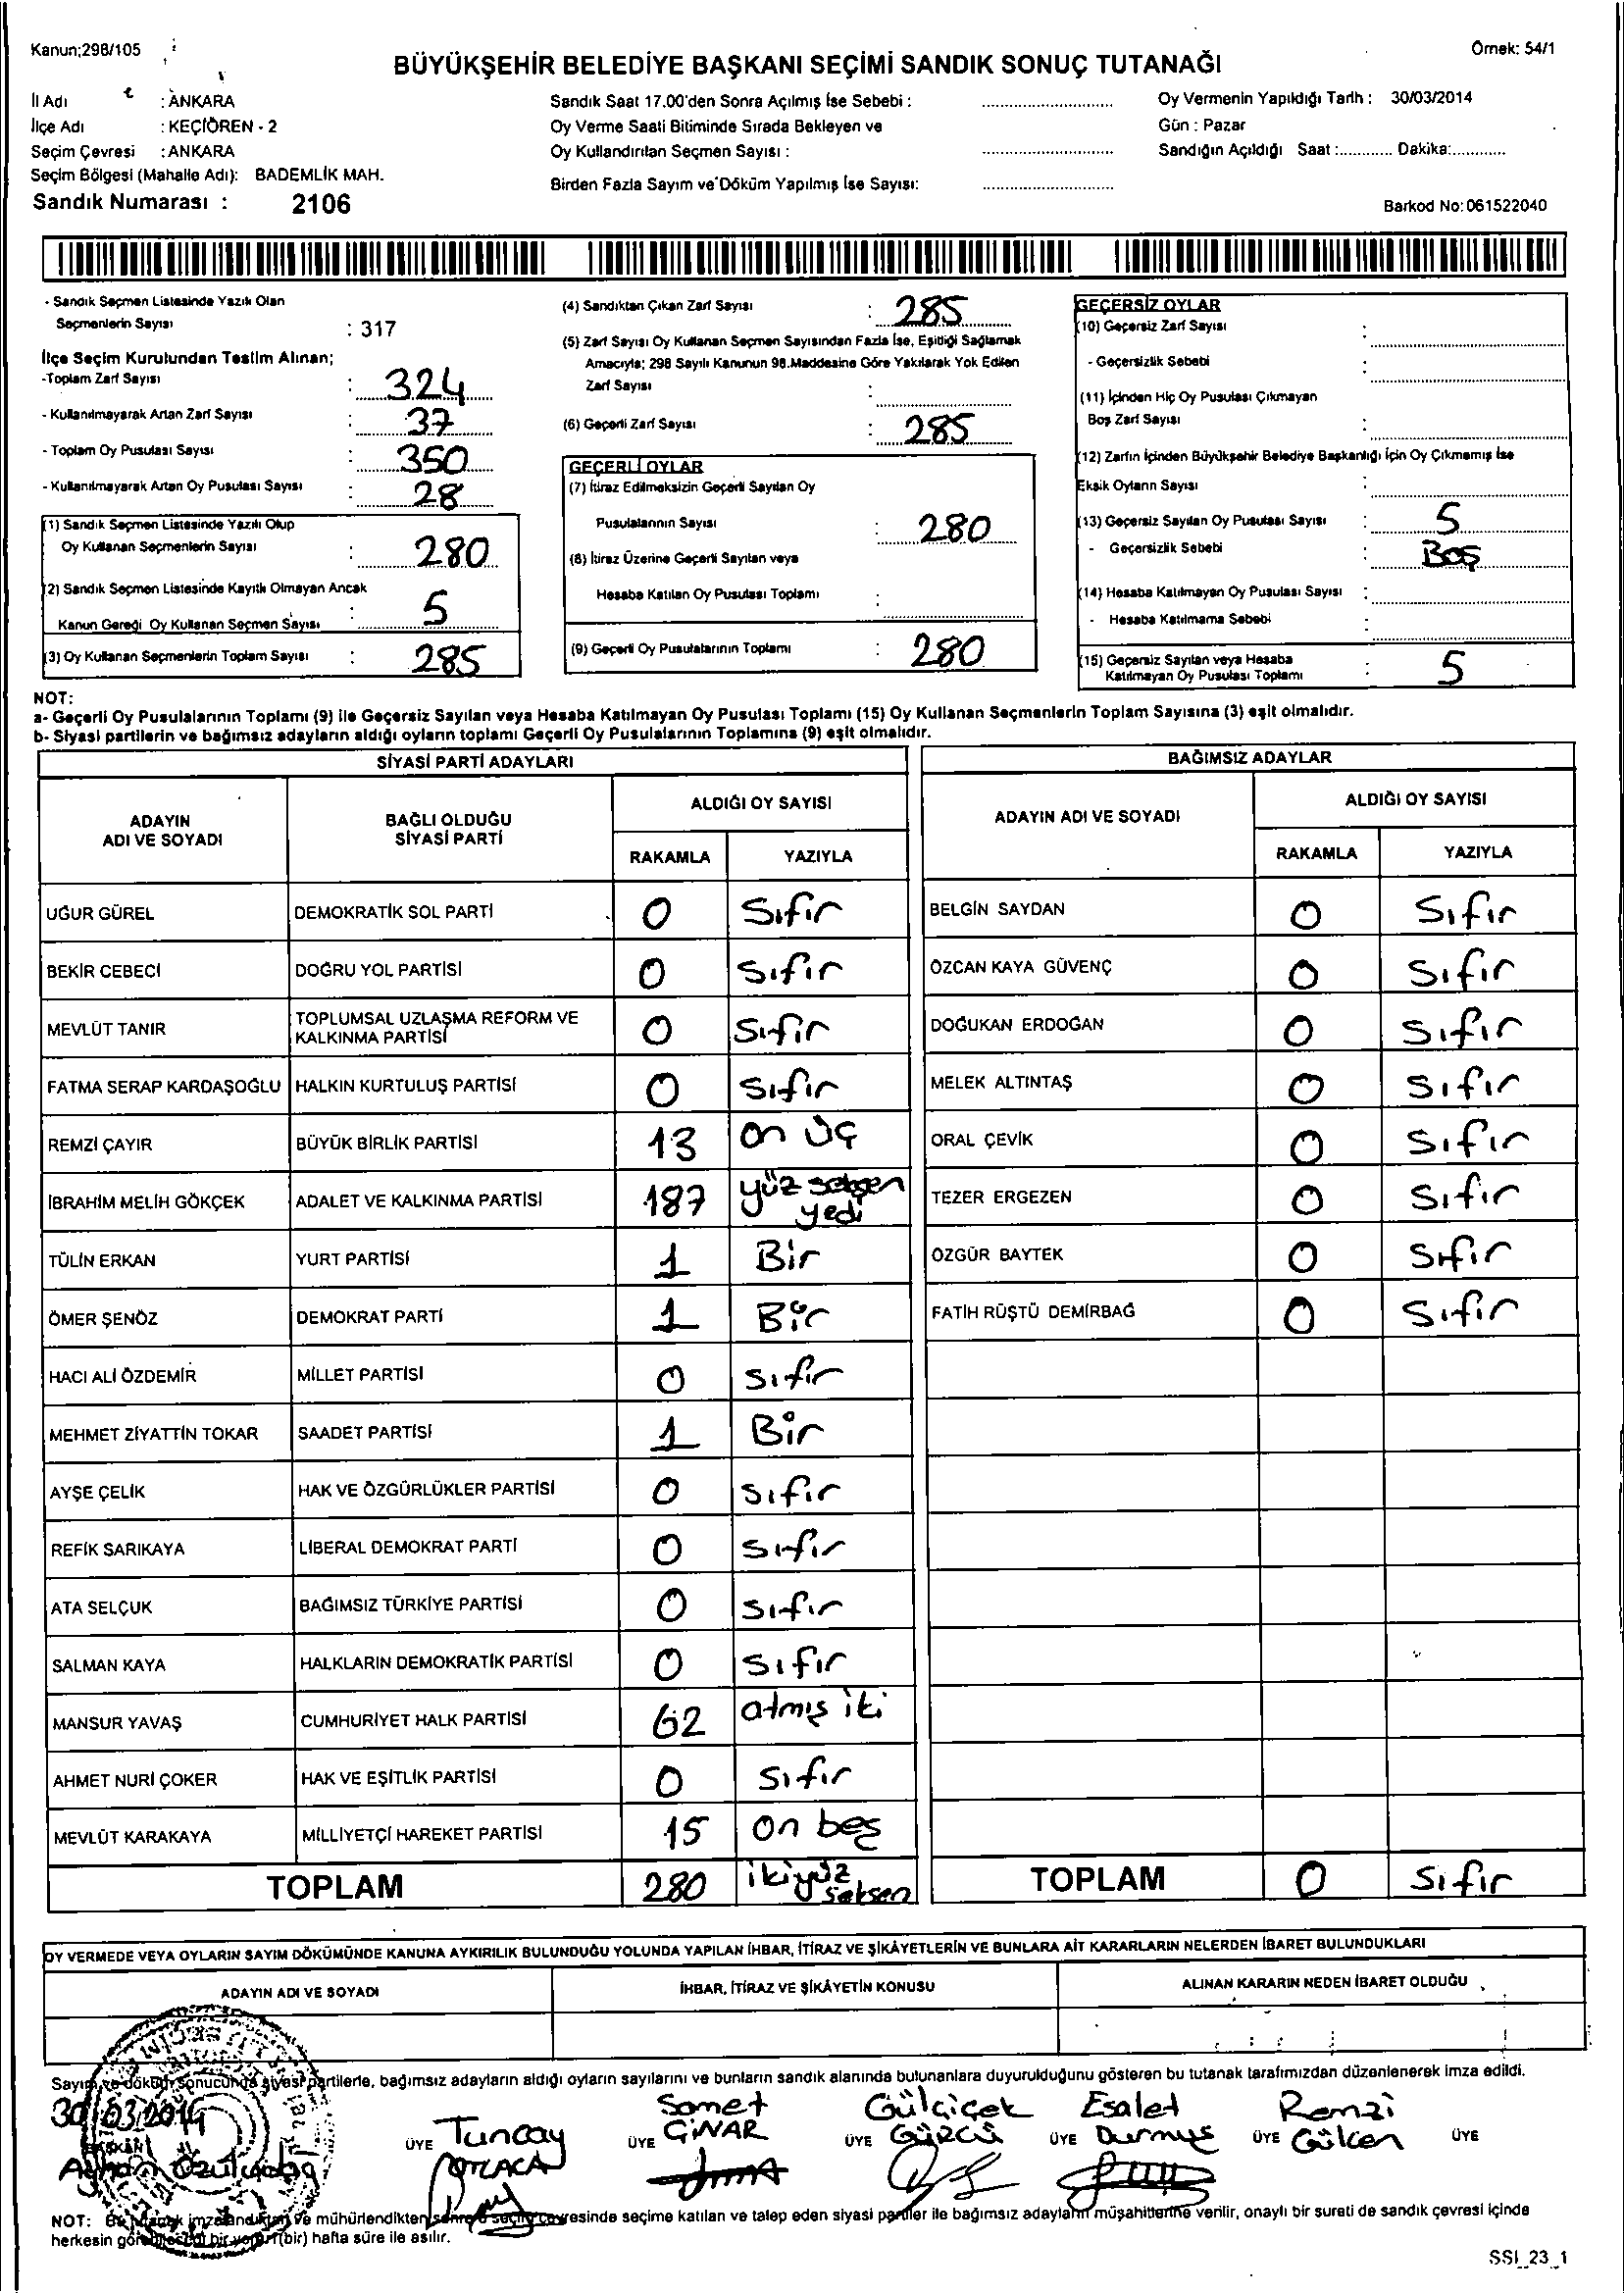 Kanun;298/105
Örnek: 54/1
BÜYÜKŞEHİR BELEDİYE BAŞKANI SEÇİMİ SANDIK SONUÇ TUTANAĞI
İl Adı : ANKARA
İlçe Adı : KEÇİÖREN - 2
Seçim Çevresi : ANKARA
Seçim Bölgesi (Mahalle Adı): BADEMLİK MAH.
Sandık Numarası : 2106
Sandık Saat 17.00'den Sonra Açılmış İse Sebebi :
Oy Verme Saati Bitiminde Sırada Bekleyen ve
Oy Kullandırılan Seçmen Sayısı :
Birden Fazla Sayım ve Döküm Yapılmış İse Sayısı:
Oy Vermenin Yapıldığı Tarih : 30/03/2014
Gün : Pazar
Sandığın Açıldığı Saat :............ Dakika:............
Barkod No: 061522040
- Sandık Seçmen Listesinde Yazılı Olan
Seçmenlerin Sayısı : 317
İlçe Seçim Kurulundan Teslim Alınan;
-Toplam Zarf Sayısı : 324
- Kullanılmayarak Artan Zarf Sayısı : 37
- Toplam Oy Pusulası Sayısı : 350
- Kullanılmayarak Artan Oy Pusulası Sayısı : 28
(1) Sandık Seçmen Listesinde Yazılı Olup
Oy Kullanan Seçmenlerin Sayısı : 280
(2) Sandık Seçmen Listesinde Kayıtlı Olmayan Ancak
Kanun Gereği Oy Kullanan Seçmen Sayısı : 5
(3) Oy Kullanan Seçmenlerin Toplam Sayısı : 285
(4) Sandıktan Çıkan Zarf Sayısı : 285
(5) Zarf Sayısı Oy Kullanan Seçmen Sayısından Fazla İse, Eşitliği Sağlamak
Amacıyla; 298 Sayılı Kanunun 98.Maddesine Göre Yakılarak Yok Edilen
Zarf Sayısı :
(6) Geçerli Zarf Sayısı : 285
GEÇERLİ OYLAR
(7) İtiraz Edilmeksizin Geçerli Sayılan Oy
Pusulalarının Sayısı : 280
(8) İtiraz Üzerine Geçerli Sayılan veya
Hesaba Katılan Oy Pusulası Toplamı :
(9) Geçerli Oy Pusulalarının Toplamı : 280
GEÇERSİZ OYLAR
(10) Geçersiz Zarf Sayısı :
- Geçersizlik Sebebi :
(11) İçinden Hiç Oy Pusulası Çıkmayan
Boş Zarf Sayısı :
(12) Zarfın İçinden Büyükşehir Belediye Başkanlığı İçin Oy Çıkmamış İse
Eksik Oyların Sayısı :
(13) Geçersiz Sayılan Oy Pusulası Sayısı : 5
- Geçersizlik Sebebi : Boş
(14) Hesaba Katılmayan Oy Pusulası Sayısı :
- Hesaba Katılmama Sebebi :
(15) Geçersiz Sayılan veya Hesaba
Katılmayan Oy Pusulası Toplamı : 5
NOT:
a- Geçerli Oy Pusulalarının Toplamı (9) ile Geçersiz Sayılan veya Hesaba Katılmayan Oy Pusulası Toplamı (15) Oy Kullanan Seçmenlerin Toplam Sayısına (3) eşit olmalıdır.
b- Siyasi partilerin ve bağımsız adayların aldığı oyların toplamı Geçerli Oy Pusulalarının Toplamına (9) eşit olmalıdır.
SİYASİ PARTİ ADAYLARI
ADAYIN ADI VE SOYADI BAĞLI OLDUĞU SİYASİ PARTİ ALDIĞI OY SAYISI
RAKAMLA YAZIYLA
UĞUR GÜREL DEMOKRATİK SOL PARTİ 0 Sıfır
BEKİR CEBECİ DOĞRU YOL PARTİSİ 0 Sıfır
MEVLÜT TANIR TOPLUMSAL UZLAŞMA REFORM VE KALKINMA PARTİSİ 0 Sıfır
FATMA SERAP KARDAŞOĞLU HALKIN KURTULUŞ PARTİSİ 0 Sıfır
REMZİ ÇAYIR BÜYÜK BİRLİK PARTİSİ 13 on üç
İBRAHİM MELİH GÖKÇEK ADALET VE KALKINMA PARTİSİ 187 yüz seksen yedi
TÜLİN ERKAN YURT PARTİSİ 1 Bir
ÖMER ŞENÖZ DEMOKRAT PARTİ 1 Bir
HACI ALİ ÖZDEMİR MİLLET PARTİSİ 0 sıfır
MEHMET ZİYATTİN TOKAR SAADET PARTİSİ 1 Bir
AYŞE ÇELİK HAK VE ÖZGÜRLÜKLER PARTİSİ 0 sıfır
REFİK SARIKAYA LİBERAL DEMOKRAT PARTİ 0 sıfır
ATA SELÇUK BAĞIMSIZ TÜRKİYE PARTİSİ 0 sıfır
SALMAN KAYA HALKLARIN DEMOKRATİK PARTİSİ 0 sıfır
MANSUR YAVAŞ CUMHURİYET HALK PARTİSİ 62 atmış iki
AHMET NURİ ÇOKER HAK VE EŞİTLİK PARTİSİ 0 sıfır
MEVLÜT KARAKAYA MİLLİYETÇİ HAREKET PARTİSİ 15 on beş
TOPLAM 280 ikiyüz seksen
BAĞIMSIZ ADAYLAR
ADAYIN ADI VE SOYADI ALDIĞI OY SAYISI
RAKAMLA YAZIYLA
BELGİN SAYDAN 0 Sıfır
ÖZCAN KAYA GÜVENÇ 0 Sıfır
DOĞUKAN ERDOĞAN 0 Sıfır
MELEK ALTINTAŞ 0 Sıfır
ORAL ÇEVİK 0 Sıfır
TEZER ERGEZEN 0 Sıfır
ÖZGÜR BAYTEK 0 Sıfır
FATİH RÜŞTÜ DEMİRBAĞ 0 Sıfır
TOPLAM 0 Sıfır
OY VERMEDE VEYA OYLARIN SAYIM DÖKÜMÜNDE KANUNA AYKIRILIK BULUNDUĞU YOLUNDA YAPILAN İHBAR, İTİRAZ VE ŞİKÂYETLERİN VE BUNLARA AİT KARARLARIN NELERDEN İBARET BULUNDUKLARI
ADAYIN ADI VE SOYADI İHBAR, İTİRAZ VE ŞİKÂYETİN KONUSU ALINAN KARARIN NEDEN İBARET OLDUĞU
Sayım ve döküm sonucunda siyasi partilerle, bağımsız adayların aldığı oyların sayılarını ve bunların sandık alanında bulunanlara duyurulduğunu gösteren bu tutanak tarafımızdan düzenlenerek imza edildi.
30/03/2014
BAŞKAN
Ayhan
ÜYE Tuncay
ÜYE Samet ÇINAR
ÜYE Gülçiçek Gürcü
ÜYE Esalet Durmuş
ÜYE Remzi Gülcen
ÜYE
NOT: Bu tutanak imzalandıktan ve mühürlendikten sonra o seçim çevresinde seçime katılan ve talep eden siyasi partiler ile bağımsız adayların müşahitlerine verilir, onaylı bir sureti de sandık çevresi içinde
herkesin görebileceği bir yere 1(bir) hafta süre ile asılır.
SSI_23_1